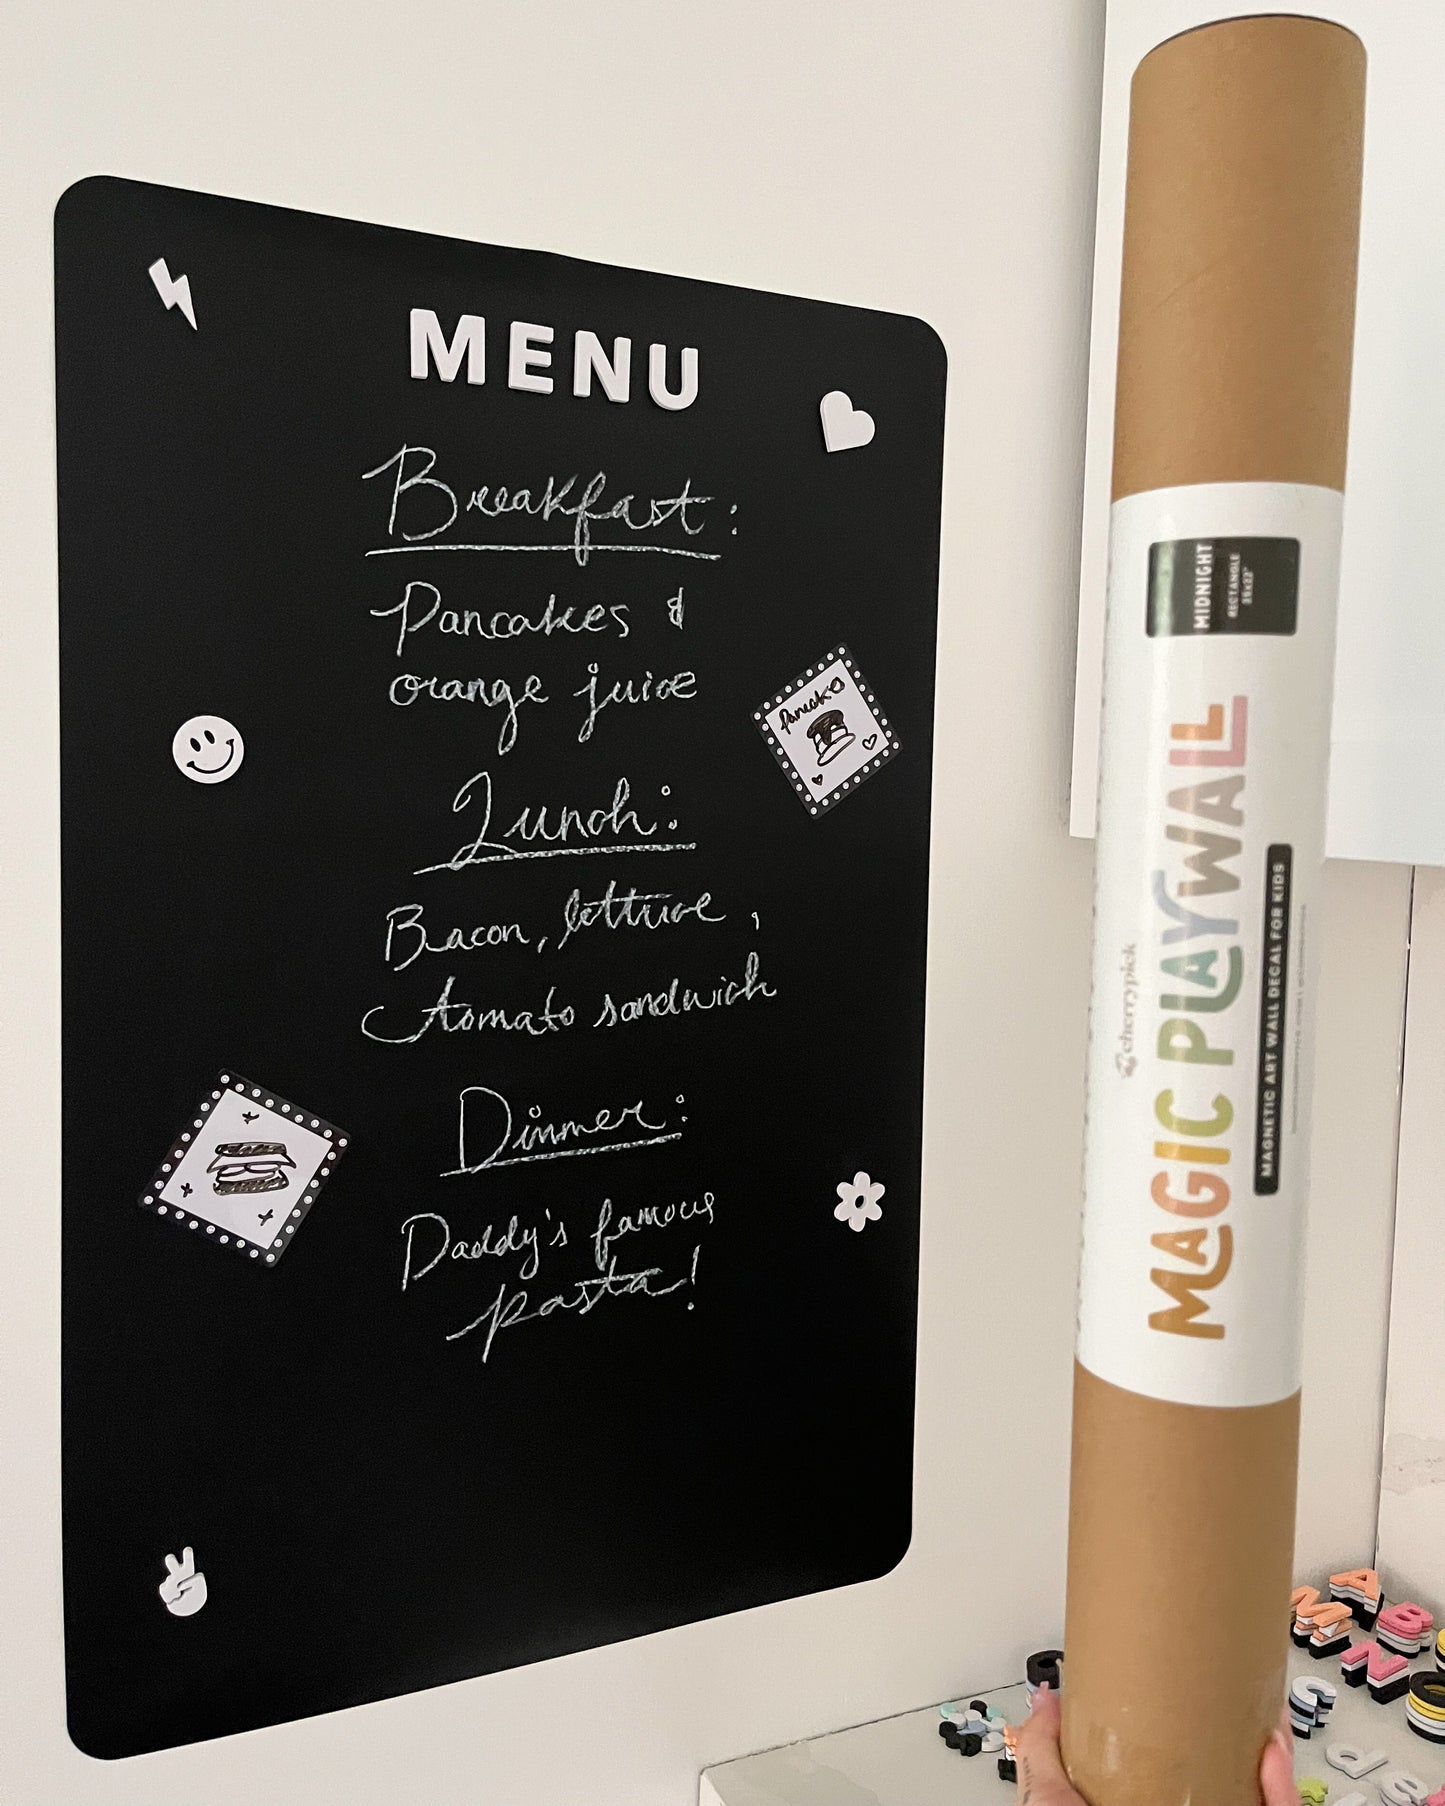 MENU
Breakfast:
Pancakes &
orange juice
Pancakes
Lunch:
Bacon, lettuce,
tomato sandwich
Dinner:
Daddy's famous
pasta!
MIDNIGHT
RECTANGLE
cherrypick
MAGIC PLAYWALL
MAGNETIC ART WALL DECAL FOR KIDS
A
M
B
N
C
d
e